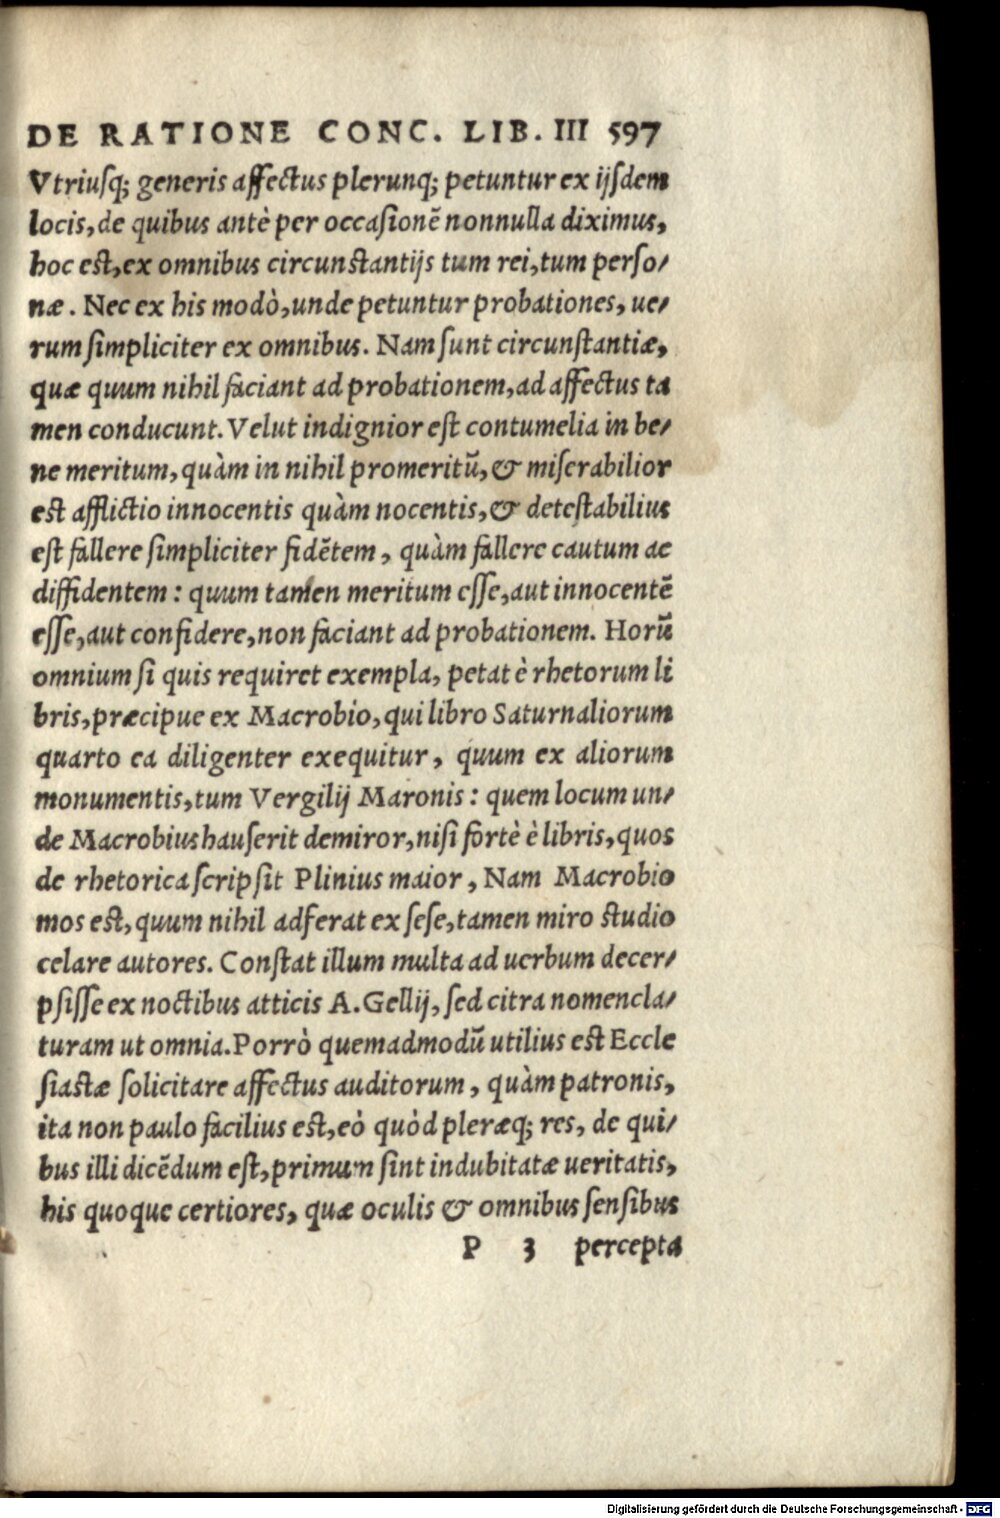 DE RATIONE CONC. LIB. III 597
Vtriusq; generis affectus plerunq; petuntur ex ijsdem
locis, de quibus antè per occasionē nonnulla diximus,
hoc est, ex omnibus circunstantijs tum rei, tum perso/
næ. Nec ex his modò, unde petuntur probationes, ue/
rum simpliciter ex omnibus. Nam sunt circunstantiæ,
quæ quum nihil faciant ad probationem, ad affectus ta
men conducunt. Velut indignior est contumelia in be/
ne meritum, quàm in nihil promeritū, & miserabilior
est afflictio innocentis quàm nocentis, & detestabilius
est fallere simpliciter fidētem, quàm fallere cautum ac
diffidentem: quum tamen meritum esse, aut innocentē
esse, aut confidere, non faciant ad probationem. Horū
omnium si quis requiret exempla, petat è rhetorum li
bris, præcipue ex Macrobio, qui libro Saturnaliorum
quarto ea diligenter exequitur, quum ex aliorum
monumentis, tum Vergilij Maronis: quem locum un/
de Macrobius hauserit demiror, nisi fortè è libris, quos
de rhetorica scripsit Plinius maior, Nam Macrobio
mos est, quum nihil adferat ex sese, tamen miro studio
celare autores. Constat illum multa ad uerbum decer/
psisse ex noctibus atticis A. Gellij, sed citra nomencla/
turam ut omnia. Porrò quemadmodū utilius est Eccle
siastæ solicitare affectus auditorum, quàm patronis,
ita non paulo facilius est, eò quòd pleræq; res, de qui/
bus illi dicēdum est, primum sint indubitatæ ueritatis,
his quoque certiores, quæ oculis & omnibus sensibus
P 3 percepta
Digitalisierung gefördert durch die Deutsche Forschungsgemeinschaft - DFG